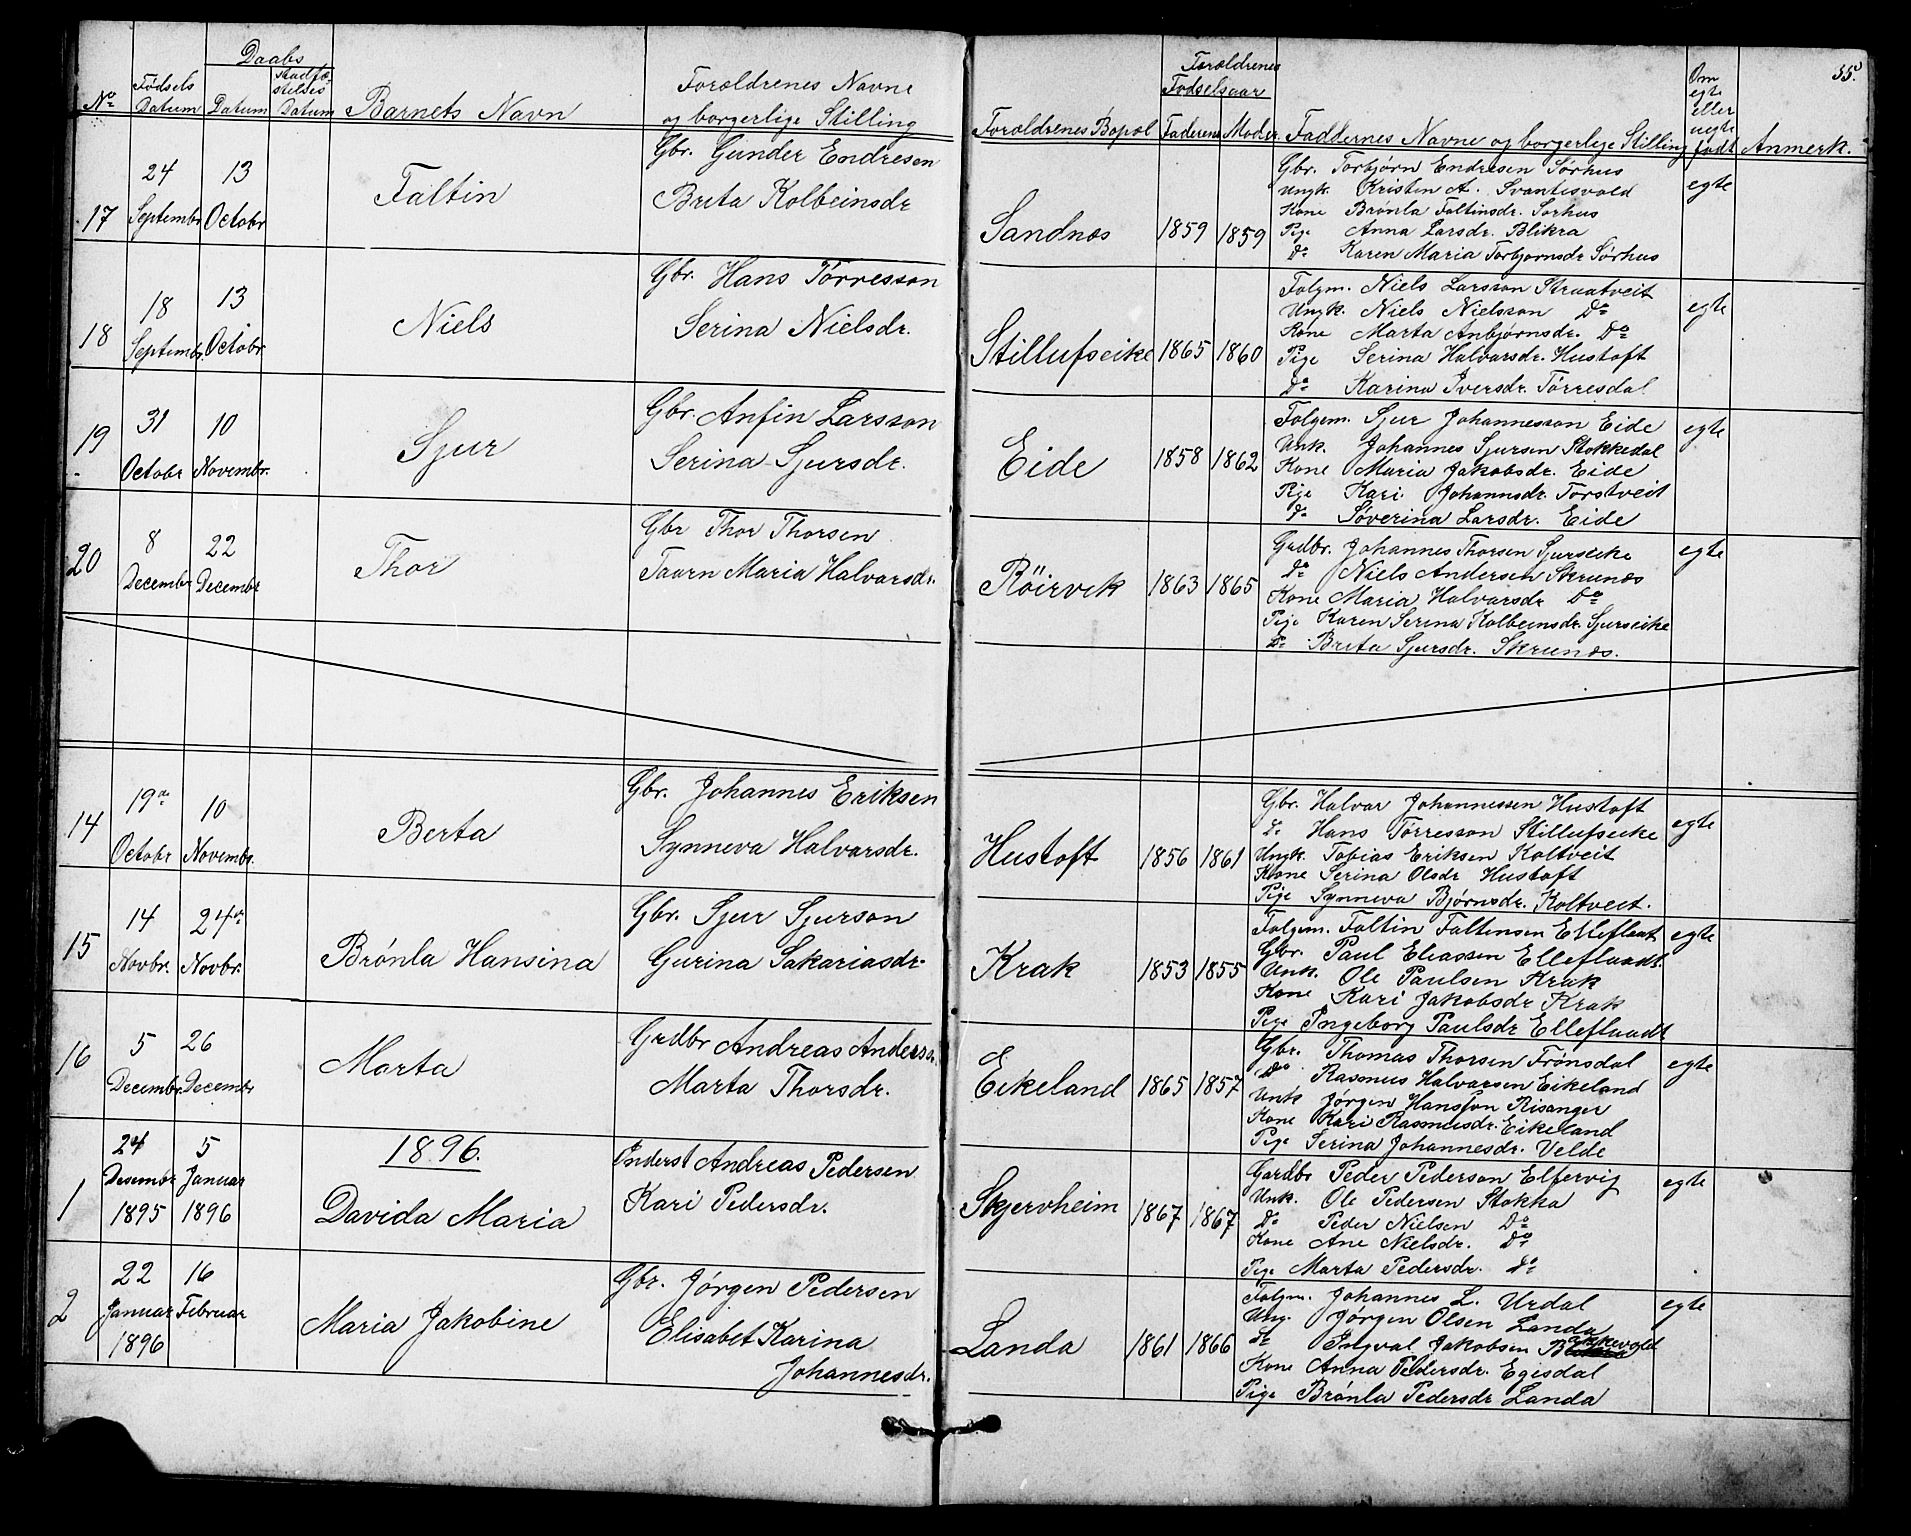 35.
No
Fødsels
Datum
Daabs
Datum
stadfæ-
stelses
Datum
Barnets Navn
Forældrenes Navne
og borgerlige Stilling
Forældrenes Bopæl
Forældrenes
Fødselsaar
Faderens
Moder.
Faddernes Navne og borgerlige Stilling
Om
egte
eller
uegte
født
Anmerk.
17
24
Septembr
13
Octobr
Faltin
Gbr. Gunder Endresen
Brita Kolbeinsdr
Sandnæs
1859
1859
Gbr. Torbjørn Endresen Sørhus
Ungk. Kristen A. Svantesvold
Kone Brønla Faltinsdr. Sørhus
Pige Anna Larsdr. Blikra
Do Karen Maria Torbjornsdr Sørhus
egte
18
18
Septembr.
13
Octobr
Niels
Gbr. Hans Tørresson
Serina Nielsdr.
Stillufseike
1865
1860
Folgm. Niels Larsson Straatveit
Ungk. Niels Nielsson Do
Kone Marta Anbjørnsdr. Do
Pige Serina Halvarsdr. Hustoft
Do Karina Iversdr. Tørresdal
egte
19
31
Octobr
10
Novembr.
Sjur
Gbr. Anfin Larsson
Serina Sjursdr.
Eide
1858
1862
Folgem. Sjur Johannesson Eide
Unk. Johannes Sjursen Stokkedal
Kone Maria Jakobsdr. Eide
Pige Kari Johannsdr. Torstveit
Do Søverina Larsdr. Eide
egte
20
8
Decembr
22
Decembr
Thor
Gbr Thor Thorsen
Taarn Maria Halvarsdr.
Röirvik
1863
1865
Grdbr. Johannes Thorsen Sjurseike
Do Niels Andersen Skrunæs
Kone Maria Halvarsdr Do
Pige Karen Serina Kolbeinsdr. Sjurseike
Do Brita Sjursdr. Skrunæs.
egte
14
19de
Octobr
10
Novembr.
Berta
Gbr. Johannes Eriksen
Synneva Halvarsdr.
Hustoft
1856
1861
Gbr. Halvar Johannessen Hustoft
Do Hans Tørresson Stillufseike
Ungk. Tobias Eriksen Koltveit
Kone Serina Olsdr Hustoft
Pige Synneva Bjørnsdr. Koltveit.
egte
15
14
Novbr.
24de
Novbr.
Brønla Hansina
Gbr. Sjur Sjurson
Gurina Sakariasdr.
Krak
1853
1855
Folgem. Faltin Faltensen Elleflaat
Gbr. Paul Eliassen Elleflaadt.
Unk. Ole Paulsen Krak
Kone Kari Jakobsdr Krak
Pige Ingeborg Paulsdr Elleflaadt
egte
16
5
Decembr.
26
Decembr
Marta
Grdbr Andreas Anderss.
Marta Thorsdr.
Eikeland
1865
1857
Gbr. Thomas Thorsen Frønsdal
Do Rasmus Halvarsen Eikeland
Unk Jørgen Hansson Risanger
Kone Kari Rasmusdr. Eikeland
Pige Serina Johannesdr. Velde
egte
1896.
1
24
Desembr
1895
5
Januar
1896
Davida Maria
Inderst Andreas Pedersen
Kari Pedersdr.
Skjervheim
1867
1867
Gardbr Peder Pederson Elfervig
Unk. Ole Pedersen Stokka
Do Peder Nielsen Do
Kone Ane Nielsdr. Do
Pige Marta Pedersdr. Do
egte
2
22
Januar
1896
16
Februar
Maria Jakobine
Gbr. Jørgen Pedersen
Elisabet Karina
Johannesdr.
Landa
1861
1866
Folgm. Johannes L. Urdal
Ung. Jørgen Olsen Landa
Do Ingval Jakobsen
Kone Anna Pedersdr. Egisdal
Pige Brønla Pedersdr Landa
egte